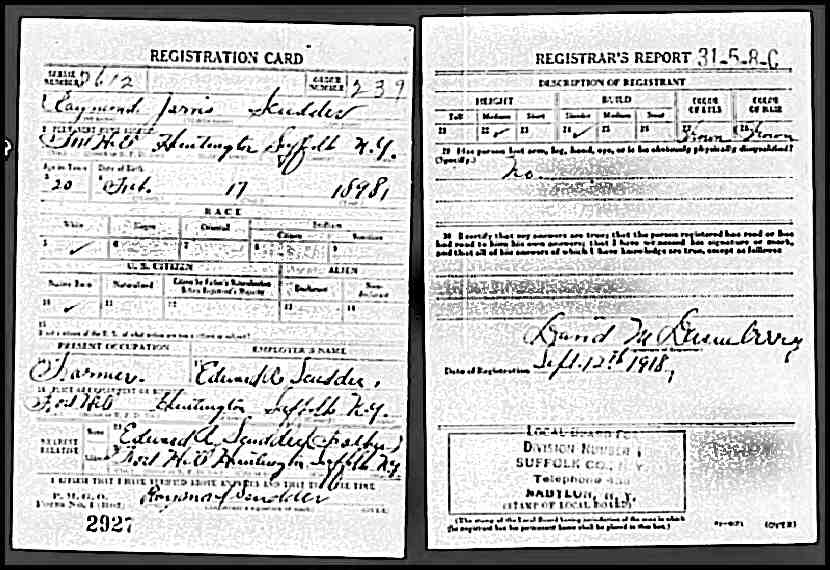 REGISTRATION CARD
SERIAL NUMBER 612 ORDER NUMBER 239
Raymond Jarvis Scudder
Fort Hill Huntington Suffolk N.Y.
Age in Years Date of Birth
20 Feb. 17 1898
RACE
White Negro Oriental Indian
Citizen Noncitizen
5 ✓ 6 7 8 9
U. S. CITIZEN ALIEN
Native Born Naturalized Citizen by Father's Naturalization Before Registrant's Majority Declarant Non-declarant
10 ✓ 11 12 13 14
15
If not a citizen of the U. S., of what nation are you a citizen or subject?
PRESENT OCCUPATION EMPLOYER'S NAME
Farmer. Edward A Scudder,
Fort Hill Huntington Suffolk N.Y.
NEAREST RELATIVE Name Edward A Scudder (Father)
Address Fort Hill Huntington Suffolk N.Y.
I AFFIRM THAT I HAVE VERIFIED ABOVE ANSWERS AND THAT THEY ARE TRUE
P. M. G. O.
Form No. 1 (Red) Raymond J Scudder (OVER)
2927
REGISTRAR'S REPORT 31-5-8-C
DESCRIPTION OF REGISTRANT
HEIGHT BUILD COLOR OF EYES COLOR OF HAIR
Tall Medium Short Slender Medium Stout
21 22 ✓ 23 24 ✓ 25 26 27 Brown 28 Brown
29 Has person lost arm, leg, hand, eye, or is he obviously physically disqualified?
(Specify.) No.
30 I certify that my answers are true; that the person registered has read or has
had read to him his own answers; that I have witnessed his signature or mark,
and that all of his answers of which I have knowledge are true, except as follows:
David
Date of Registration Sept. 12th 1918
LOCAL BOARD FOR
DIVISION NUMBER 1
SUFFOLK CO., N.Y.
Telephone
BABYLON, N. Y.
(STAMP OF LOCAL BOARD)
(The stamp of the Local Board having jurisdiction of the area in which
the registrant has his permanent home shall be placed in this box.)
(OVER)